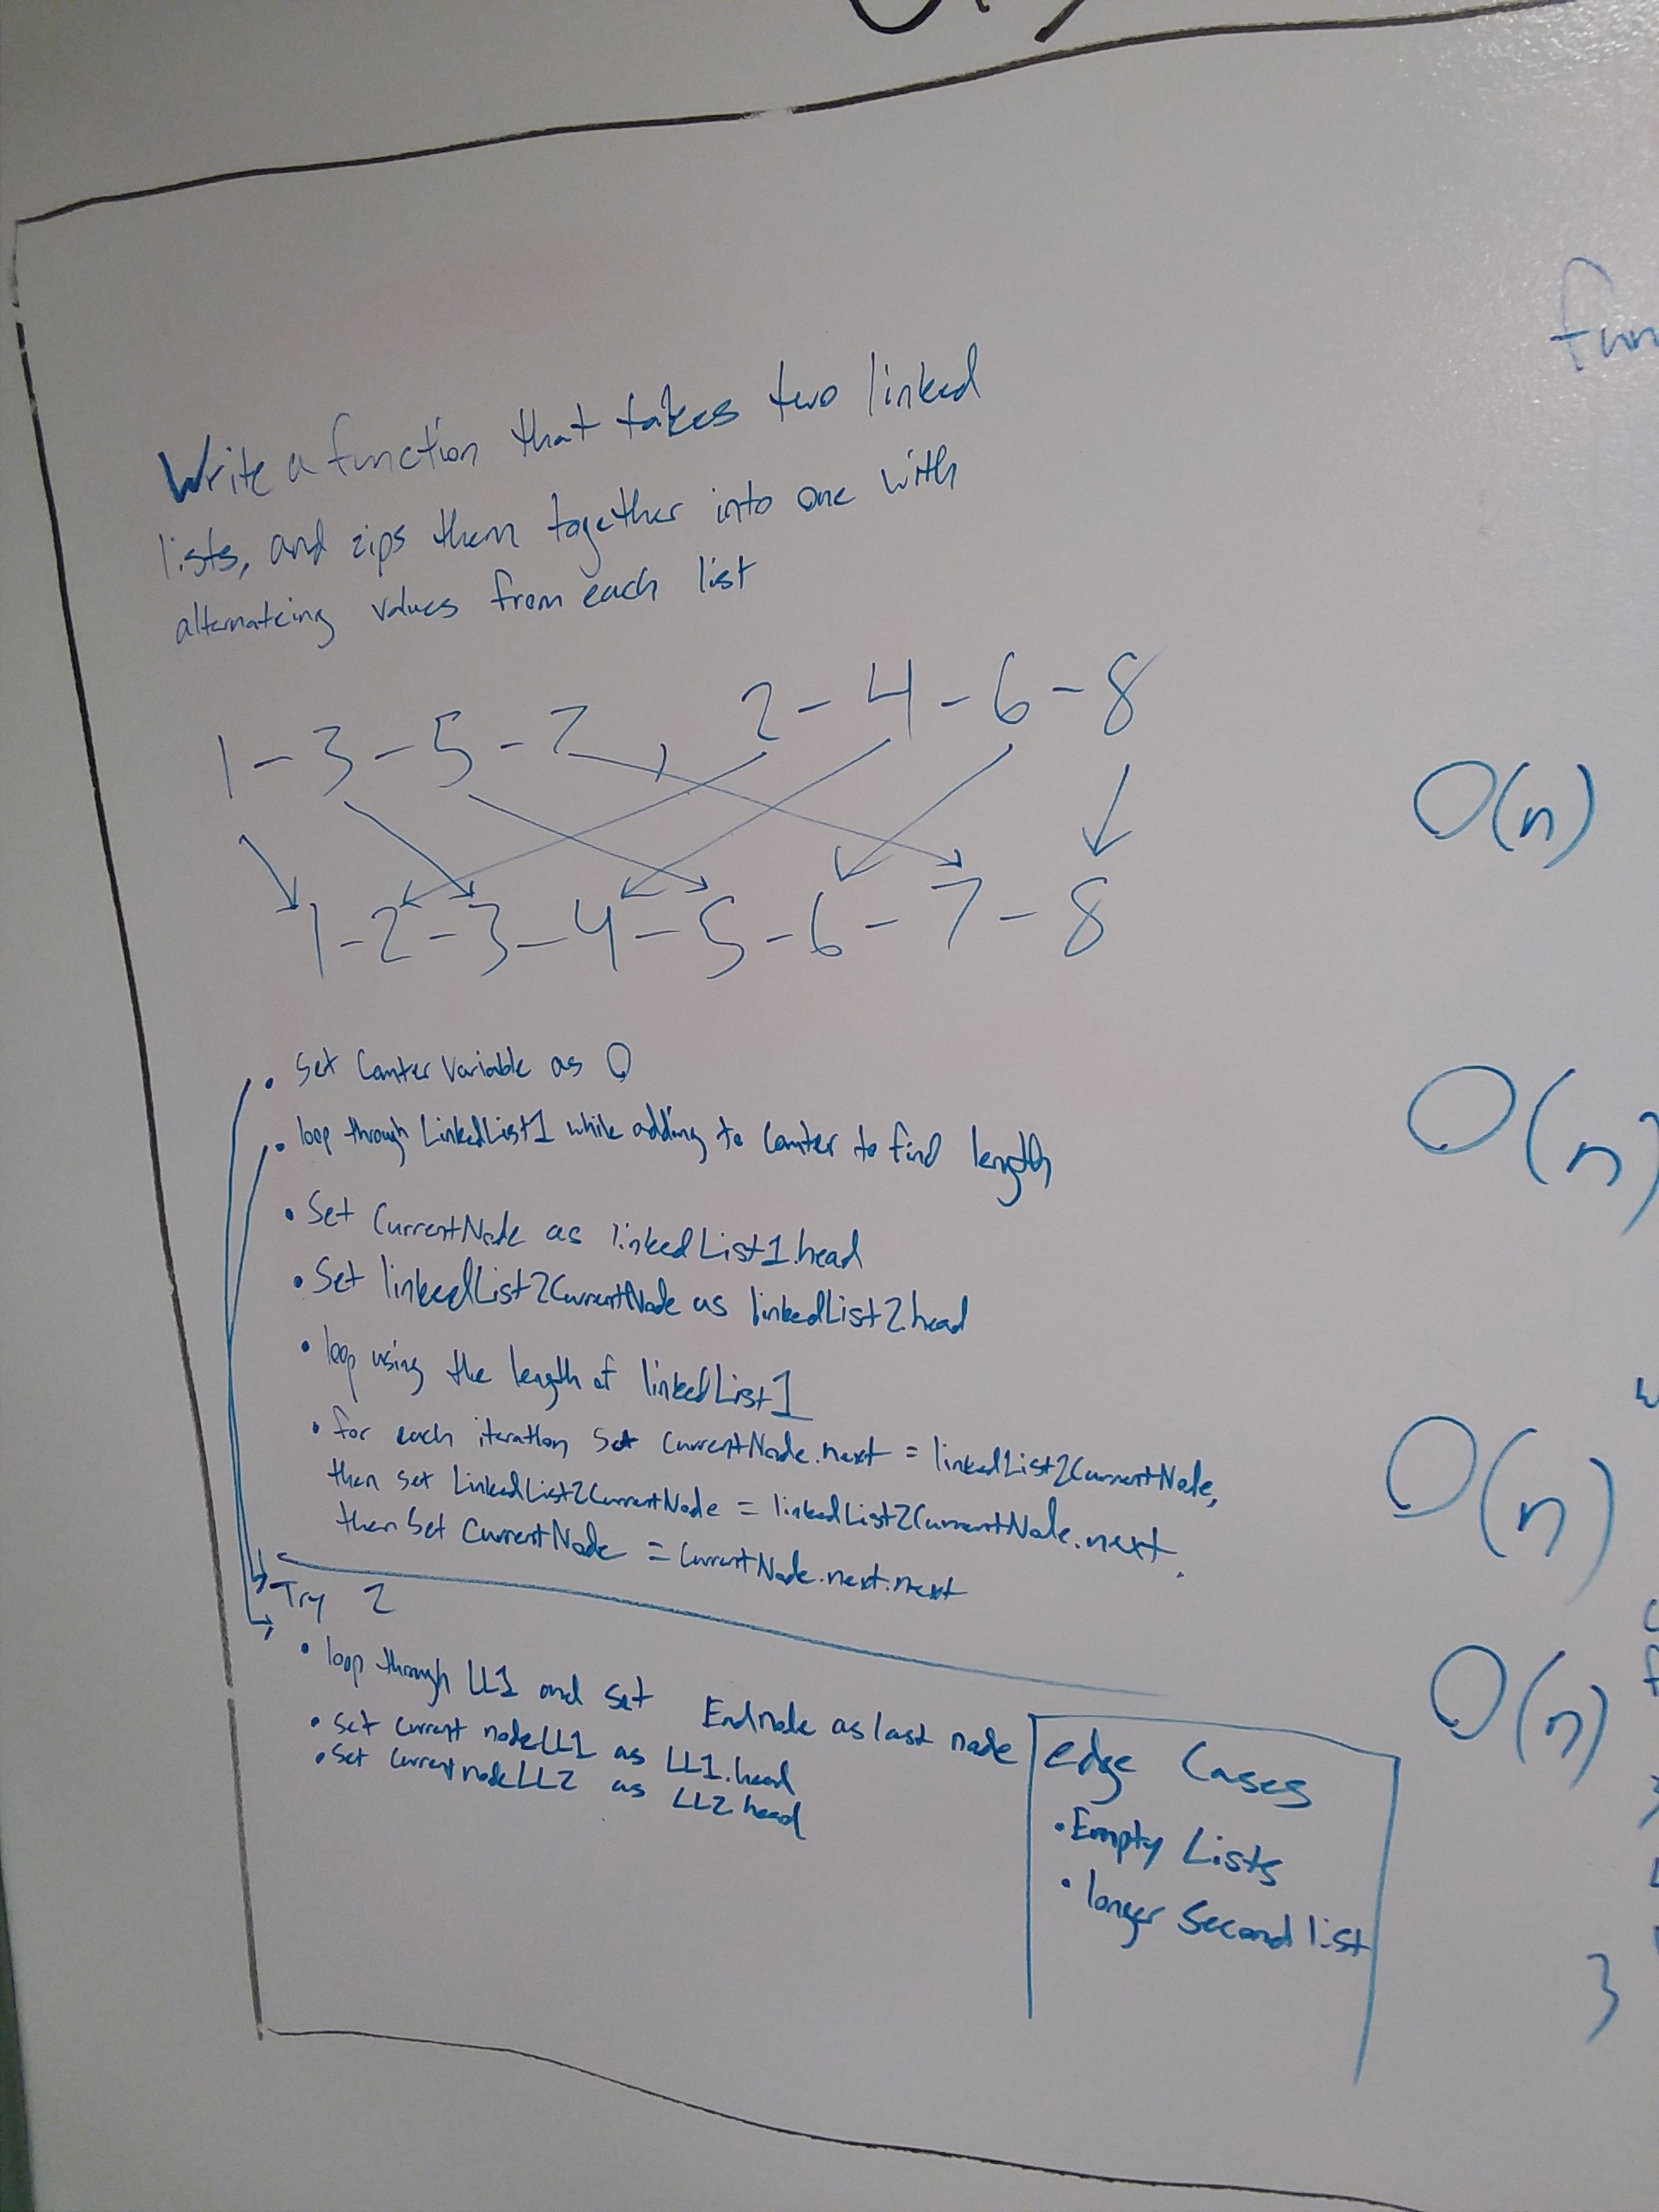 Write a function that takes two linked
lists, and zips them together into one with
alternateing values from each list
1-3-5-7, 2-4-6-8
1-2-3-4-5-6-7-8
• Set Counter Variable as 0
• loop through LinkedList1 while adding to Counter to find length
• Set CurrentNode as linkedList1.head
• Set linkedList2CurrentNode as linkedList2.head
• loop using the length of linkedList1
• for each iteration set CurrentNode.next = linkedList2CurrentNode,
then set LinkedList2CurrentNode = linkedList2CurrentNode.next,
then Set CurrentNode = CurrentNode.next.next
Try 2
• loop through LL1 and set Endnode as last node
• Set Current nodeLL1 as LL1.head
• Set CurrentnodeLL2 as LL2.head
edge Cases
• Empty Lists
• longer Second list
fun
O(n)
O(n)
O(n)
O(n)
}